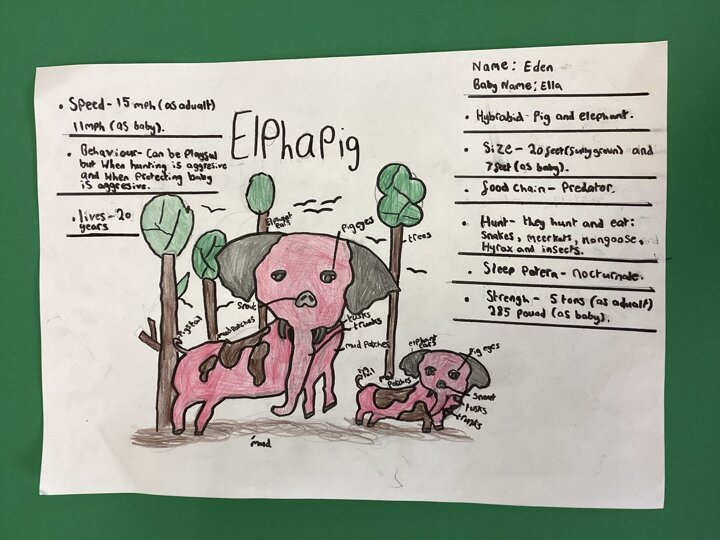 Elphapig
• Speed - 15 mph (as adualt)
11mph (as baby).
• Behaviour - Can be playful
but when hunting is aggresive
and when protecting baby
is aggresive.
• lives - 20
years
Name: Eden
Baby Name: Ella
• Hybrabid - Pig and elephant.
• Size - 20 feet (fully grown) and
7 feet (as baby).
• food chain - Predator.
• Hunt - they hunt and eat:
Snakes, meerkats, mongoose,
Hyrax and insects.
• Sleep Patern - nocturnale.
• Strengh - 5 tons (as adualt)
285 pound (as baby).
ears
Pig eyes
trees
Snout
tusks
trunks
Pigs tail
mud patches
mud patches
mud
elephant
ears
Pig eyes
tail
mud
Patches
Snout
tusks
trunks